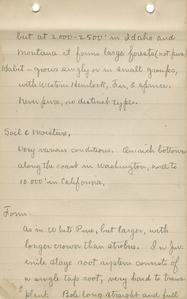 but at 2000-2500' in Idaho and
Montana it forms large forests (not pure)
Habit - grows singly or in small groups,
with Western Hemlock, Fir, & spruce.
Never pure, no distinct types.
Soil & Moisture.
Very various conditions. On rich bottoms
along the coast in Washington, and to
10 000' in California.
Form.
As in White Pine, but larger, with
longer crown than strobus. In juv-
enile stage root system consists of
a single tap root, very hard to trans-
plant. Bole long straight and full